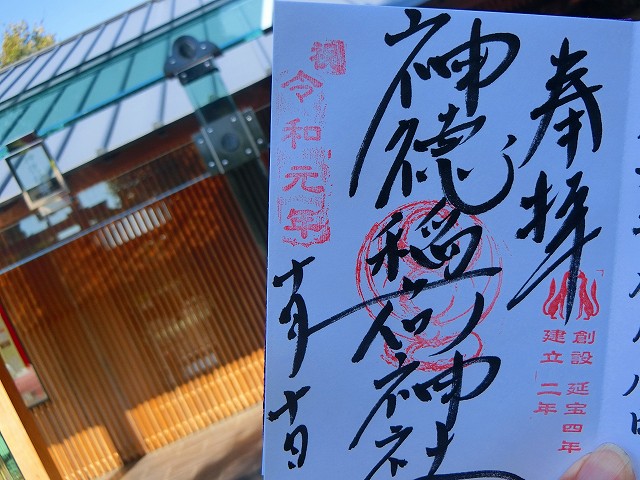 奉拝
創設 延宝四年
建立 二年
神徳稲荷神社
祝
令和元年
十月十日